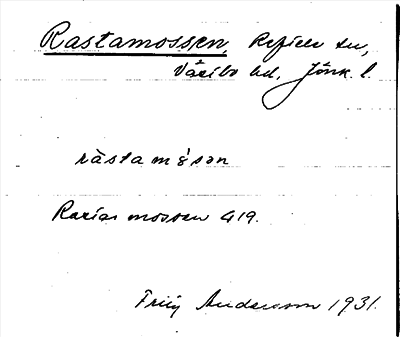 Rastamossen, Reftele sn,
Västbo hd, Jönk. l.
ràstamǒ̀san
Rarias mossen 419.
Friey Andersson 1931.